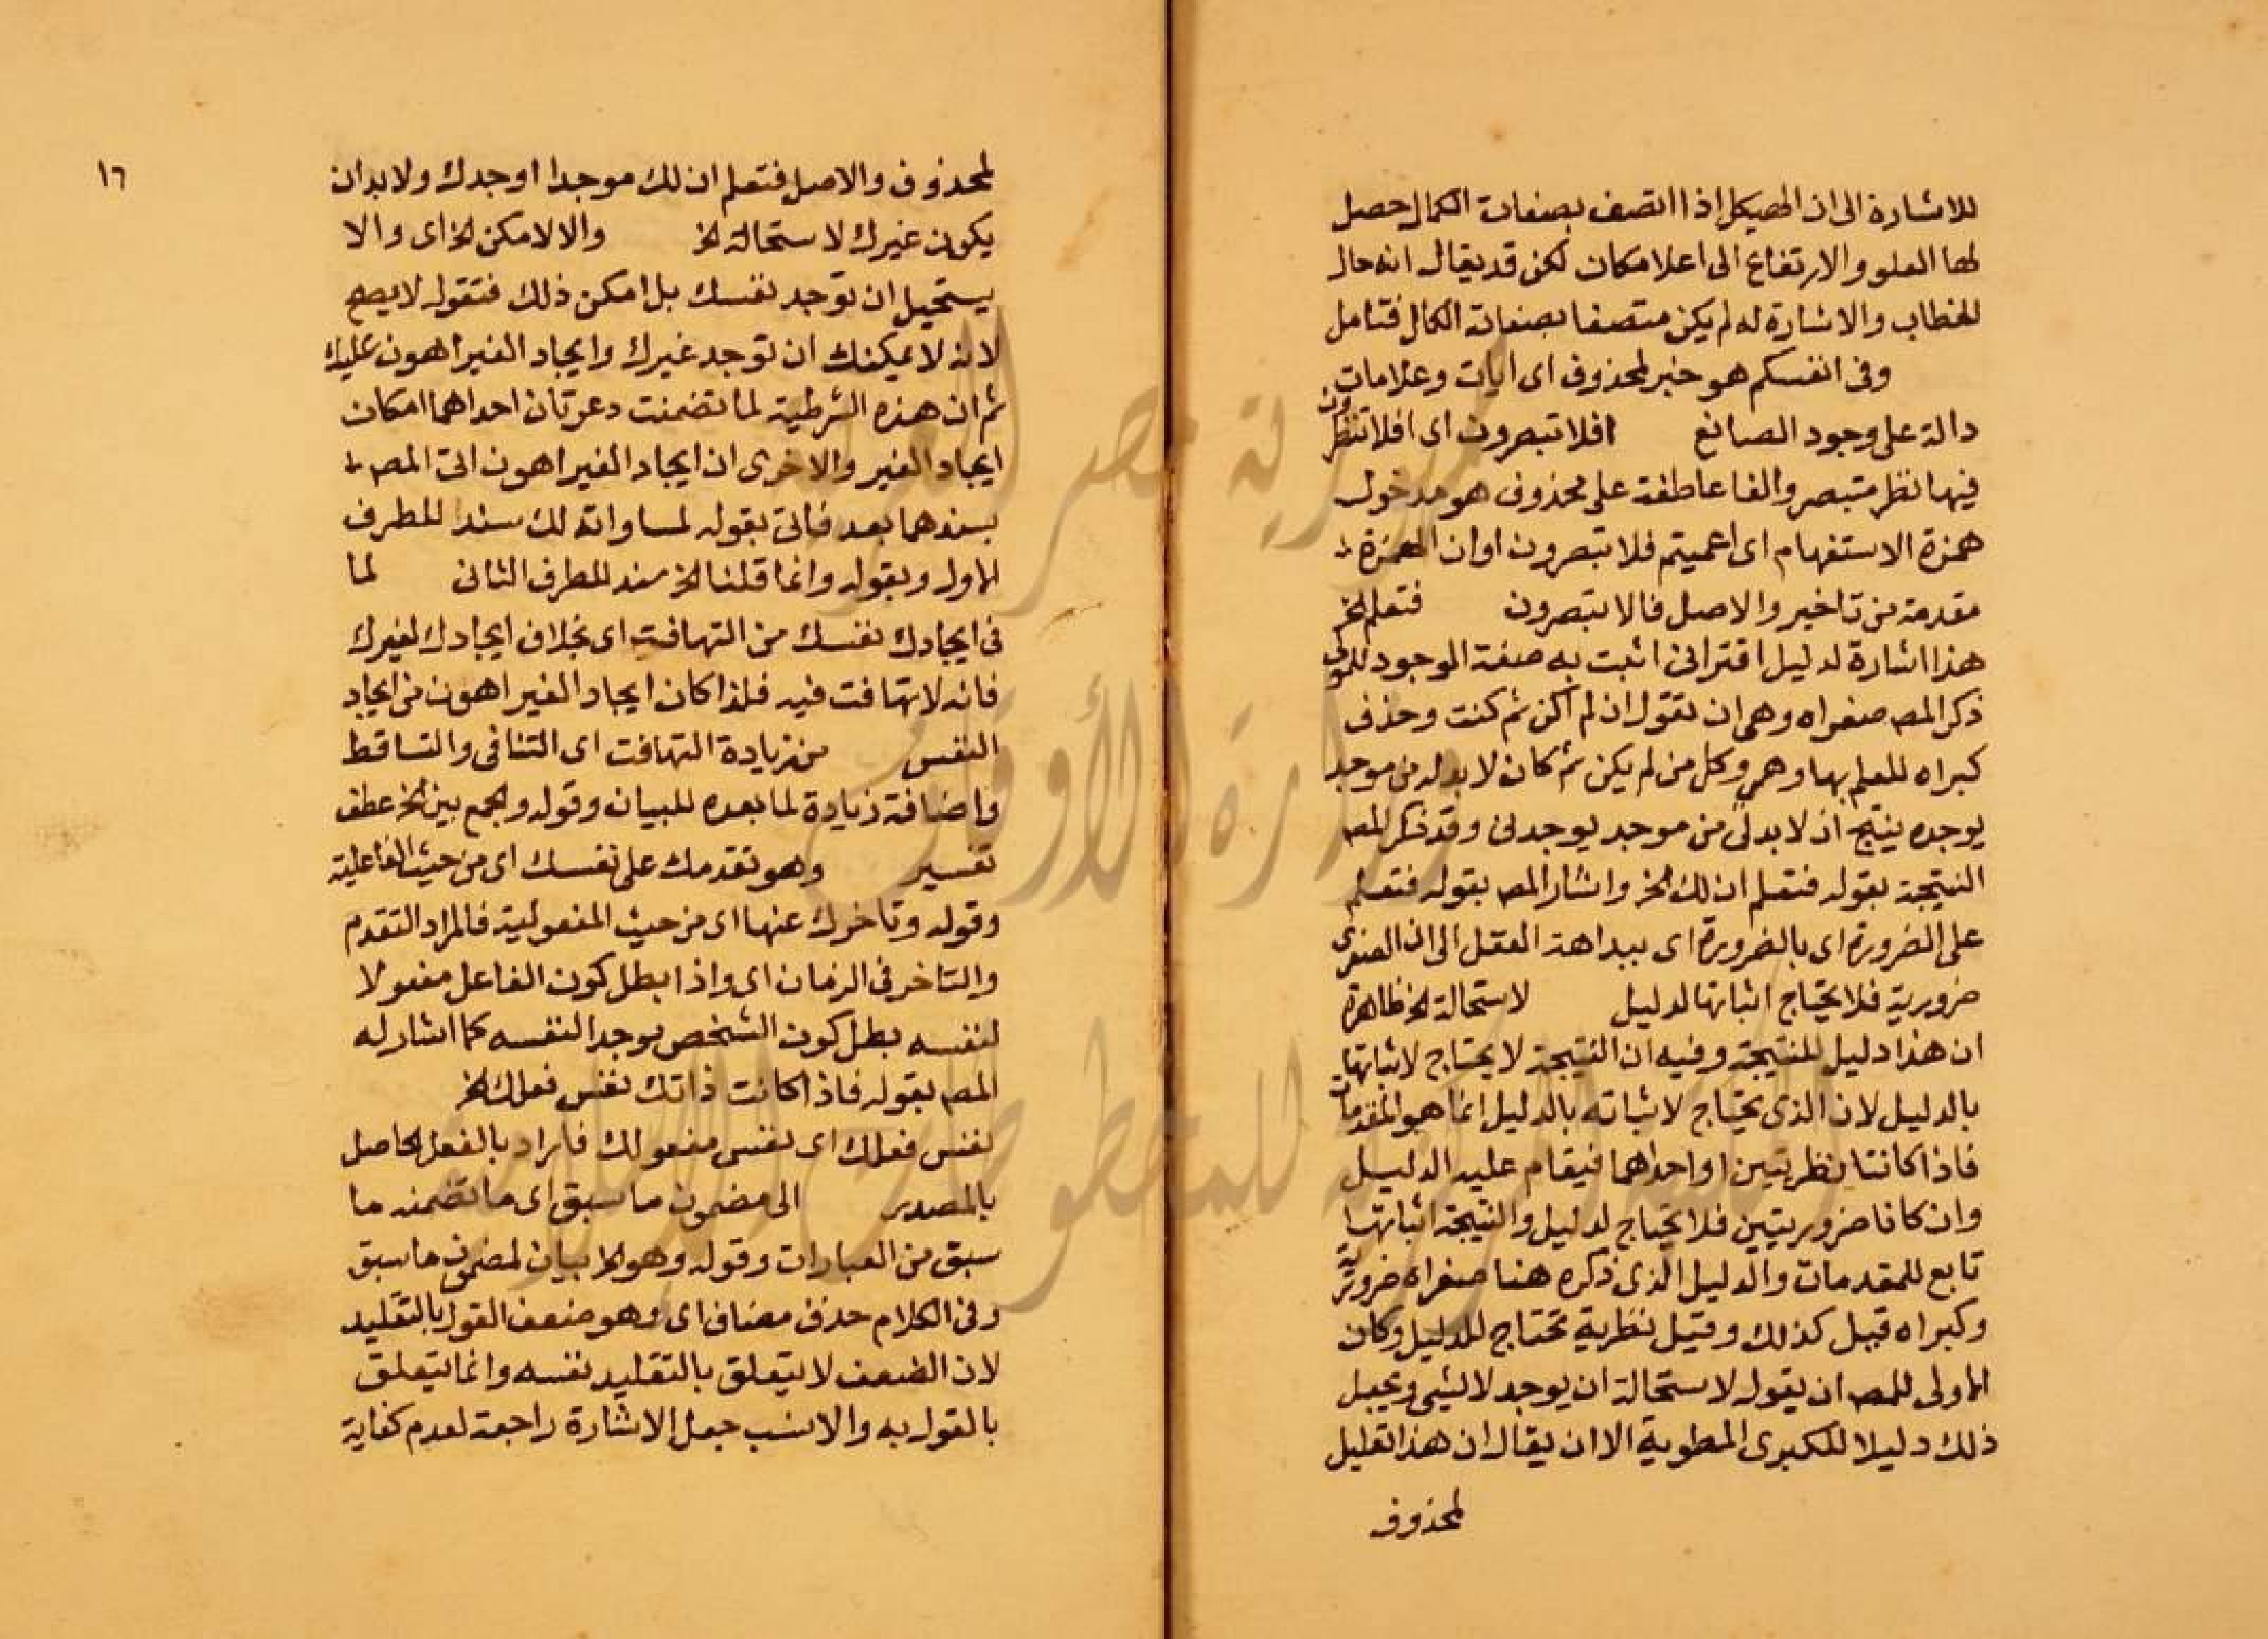 للاشارة الى ان الهيكل اذا اتصف بصفات الكمال حصل
لها العلو والارتفاع الى اعلا مكان لكن قد يقال انه حال
الخطاب والاشارة له لم يكن متصفا بصفات الكمال فتامل
وفى انفسكم هو خبر لمحذوف اى ايات وعلامات
دالة على وجود الصانع افلا تبصرون اى افلا تنظرون
فيها نظر متبصر والفا عاطفة على محذوف هو مدخول
همزة الاستفهام اى اعميتم فلا تبصرون او ان الهمزة
مقدمة من تاخير والاصل فالا تبصرون فتعلم الخ
هذا اشارة لدليل اقترانى اثبت به صفة الوجود للمولى
ذكر المص صغراه وهى ان تقول ان لم اكن ثم كنت وحذف
كبراه للعلم بها وهى وكل من لم يكن ثم كان لا بد له من موجد
يوجده ينتج ان لا بد لى من موجد يوجدنى وقد ذكر المص
النتيجة بقوله فتعلم ان لك الخ واشار المص بقوله فتعلم
على الضرورة اى بالضرورة اى ببداهة العقل الى ان الصغرى
ضرورية فلا يحتاج اثباتها لدليل لاستحالة الخ ظاهره
ان هذا دليل للنتيجة وفيه ان النتيجة لا يحتاج لاثباتها
بالدليل لان الذى يحتاج لاثباته بالدليل انما هو المقدمات
فاذا كانتا نظريتين او احداهما فيقام عليه الدليل
وان كانا ضروريتين فلا يحتاج لدليل والنتيجة اثباتها
تابع للمقدمات والدليل الذى ذكره هنا صغراه ضرورية
وكبراه قيل كذلك وقيل نظرية تحتاج للدليل وكان
الاولى للمص ان يقول لاستحالة ان يوجد لا لشيى ويجعل
ذلك دليلا للكبرى المطوية الا ان يقال ان هذا تعليل
لمحذوف
١٦
لمحذوف والاصل فتعلم ان لك موجدا اوجدك ولا بد ان
يكون غيرك لاستحالة الخ والا لامكن الخ اى والا
يستحيل ان توجد نفسك بل امكن ذلك فتقول لا يصح
لانه لا يمكنك ان توجد غيرك وايجاد الغير اهون عليك
ثم ان هذه الشرطية لما تضمنت دعوتان احداهما امكان
ايجاد الغير والاخرى ان ايجاد الغير اهون اتى المص
بسندهما بعد فاتى بقوله لمساواته لك سندا للطرف
الاول وبقوله وانما قلنا الخ سند للطرف الثانى لما
فى ايجادك نفسك من التهافت اى بخلاف ايجادك لغيرك
فانه لا تهافت فيه فلذا كان ايجاد الغير اهون من ايجاد
النفس من زيادة التهافت اى التنافى والتساقط
واضافة زيادة لما بعده للبيان وقوله والجمع بين الخ عطف
تفسير وهو تقدمك على نفسك اى من حيث الفاعلية
وقوله وتاخرك عنها اى من حيث المفعولية فالمراد التقدم
والتاخر فى الزمان اى واذا بطل كون الفاعل مفعولا
لنفسه بطل كون الشخص موجدا لنفسه كما اشار له
المص بقوله فاذا كانت ذاتك نفس فعلك الخ
نفس فعلك اى نفس مفعولك فاراد بالفعل الحاصل
بالمصدر الى مضمون ما سبق اى ما تضمنه ما
سبق من العبارات وقوله وهو الخ بيان لمضمون ما سبق
وفى الكلام حذف مضاف اى وهو ضعف القول بالتقليد
لان الضعف لا يتعلق بالتقليد نفسه وانما يتعلق
بالقول به والانسب جعل الاشارة راجعة لعدم كفاية